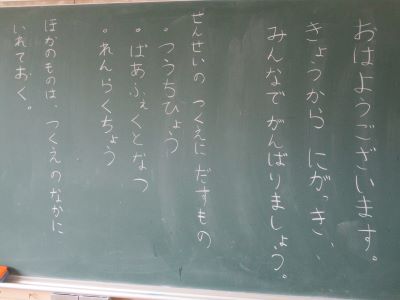 おはようございます。
きょうから にがっき、
みんなで がんばりましょう。
せんせいの つくえに だすもの
・つうちひょう
・ぱあふぇくとなつ
・れんらくちょう
ほかのものは、つくえのなかに
いれておく。